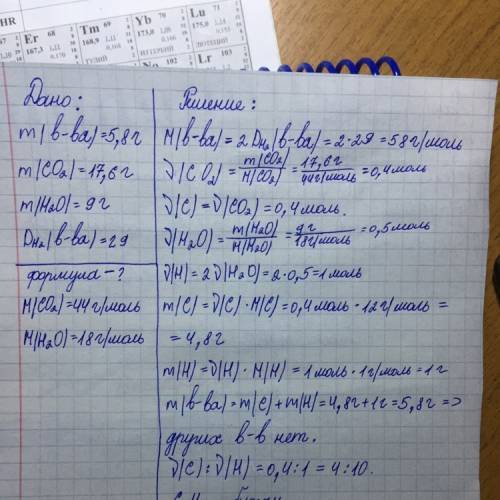 HR
Er 68
167,3
Tm 69
168,9
ТУЛИЙ
Yb 70
173,0
ИТТЕРБИЙ
Lu 71
175,0
ЛЮТЕЦИЙ
102
Lr 103
Дано:
m(в-ва)=5,8г
m(CO₂)=17,6г
m(H₂O)=9г
DH₂(в-ва)=29
формула-?
M(CO₂)=44г/моль
M(H₂O)=18г/моль
Решение:
M(в-ва)=2DH₂(в-ва)=2·29=58г/моль
ν(CO₂)=m(CO₂)/M(CO₂)=17,6г/44г/моль=0,4моль
ν(C)=ν(CO₂)=0,4моль.
ν(H₂O)=m(H₂O)/M(H₂O)=9г/18г/моль=0,5моль
ν(H)=2ν(H₂O)=2·0,5=1моль
m(C)=ν(C)·M(C)=0,4моль·12г/моль=
=4,8г
m(H)=ν(H)·M(H)=1моль·1г/моль=1г
m(в-ва)=m(C)+m(H)=4,8г+1г=5,8г=>
других в-в нет.
ν(C):ν(H)=0,4:1=4:10.